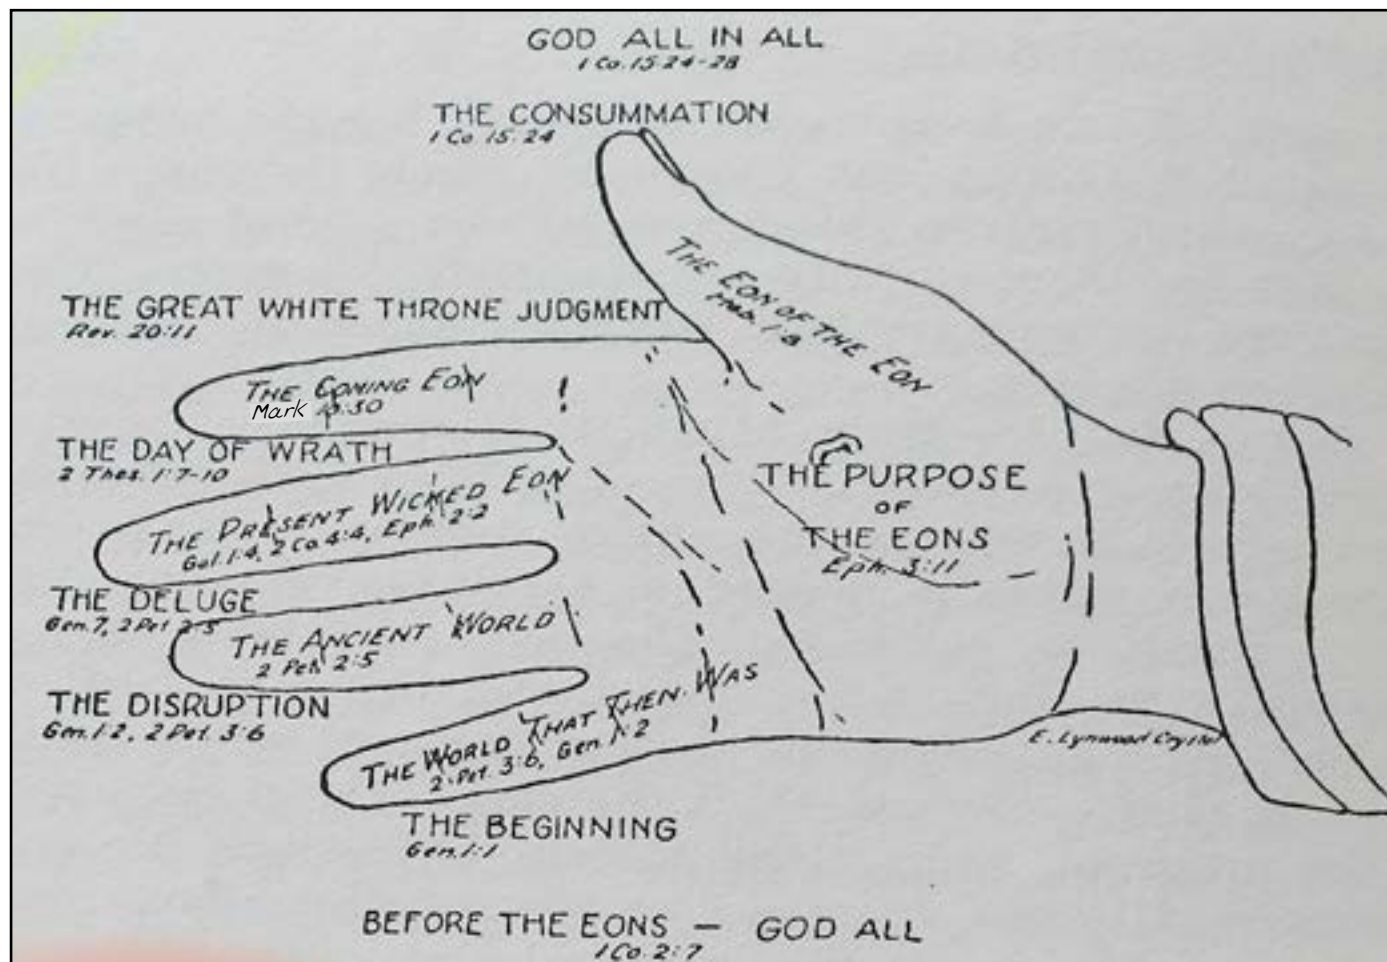 GOD ALL IN ALL
1 Co. 15:24-28
THE CONSUMMATION
1 Co. 15:24
THE EON OF THE EON
Heb. 1:8
THE GREAT WHITE THRONE JUDGMENT
Rev. 20:11
THE COMING EON
Mark 10:30
THE DAY OF WRATH
2 Thes. 1:7-10
THE PRESENT WICKED EON
Gal. 1:4, 2 Co. 4:4, Eph. 2:2
THE PURPOSE
OF
THE EONS
Eph. 3:11
THE DELUGE
Gen. 7, 2 Pet. 2:5
THE ANCIENT WORLD
2 Pet. 2:5
THE DISRUPTION
Gen. 1:2, 2 Pet. 3:6
THE WORLD THAT THEN WAS
2 Pet. 3:6, Gen. 1:2
E. Lynwood Crystal
THE BEGINNING
Gen. 1:1
BEFORE THE EONS — GOD ALL
1 Co. 2:7